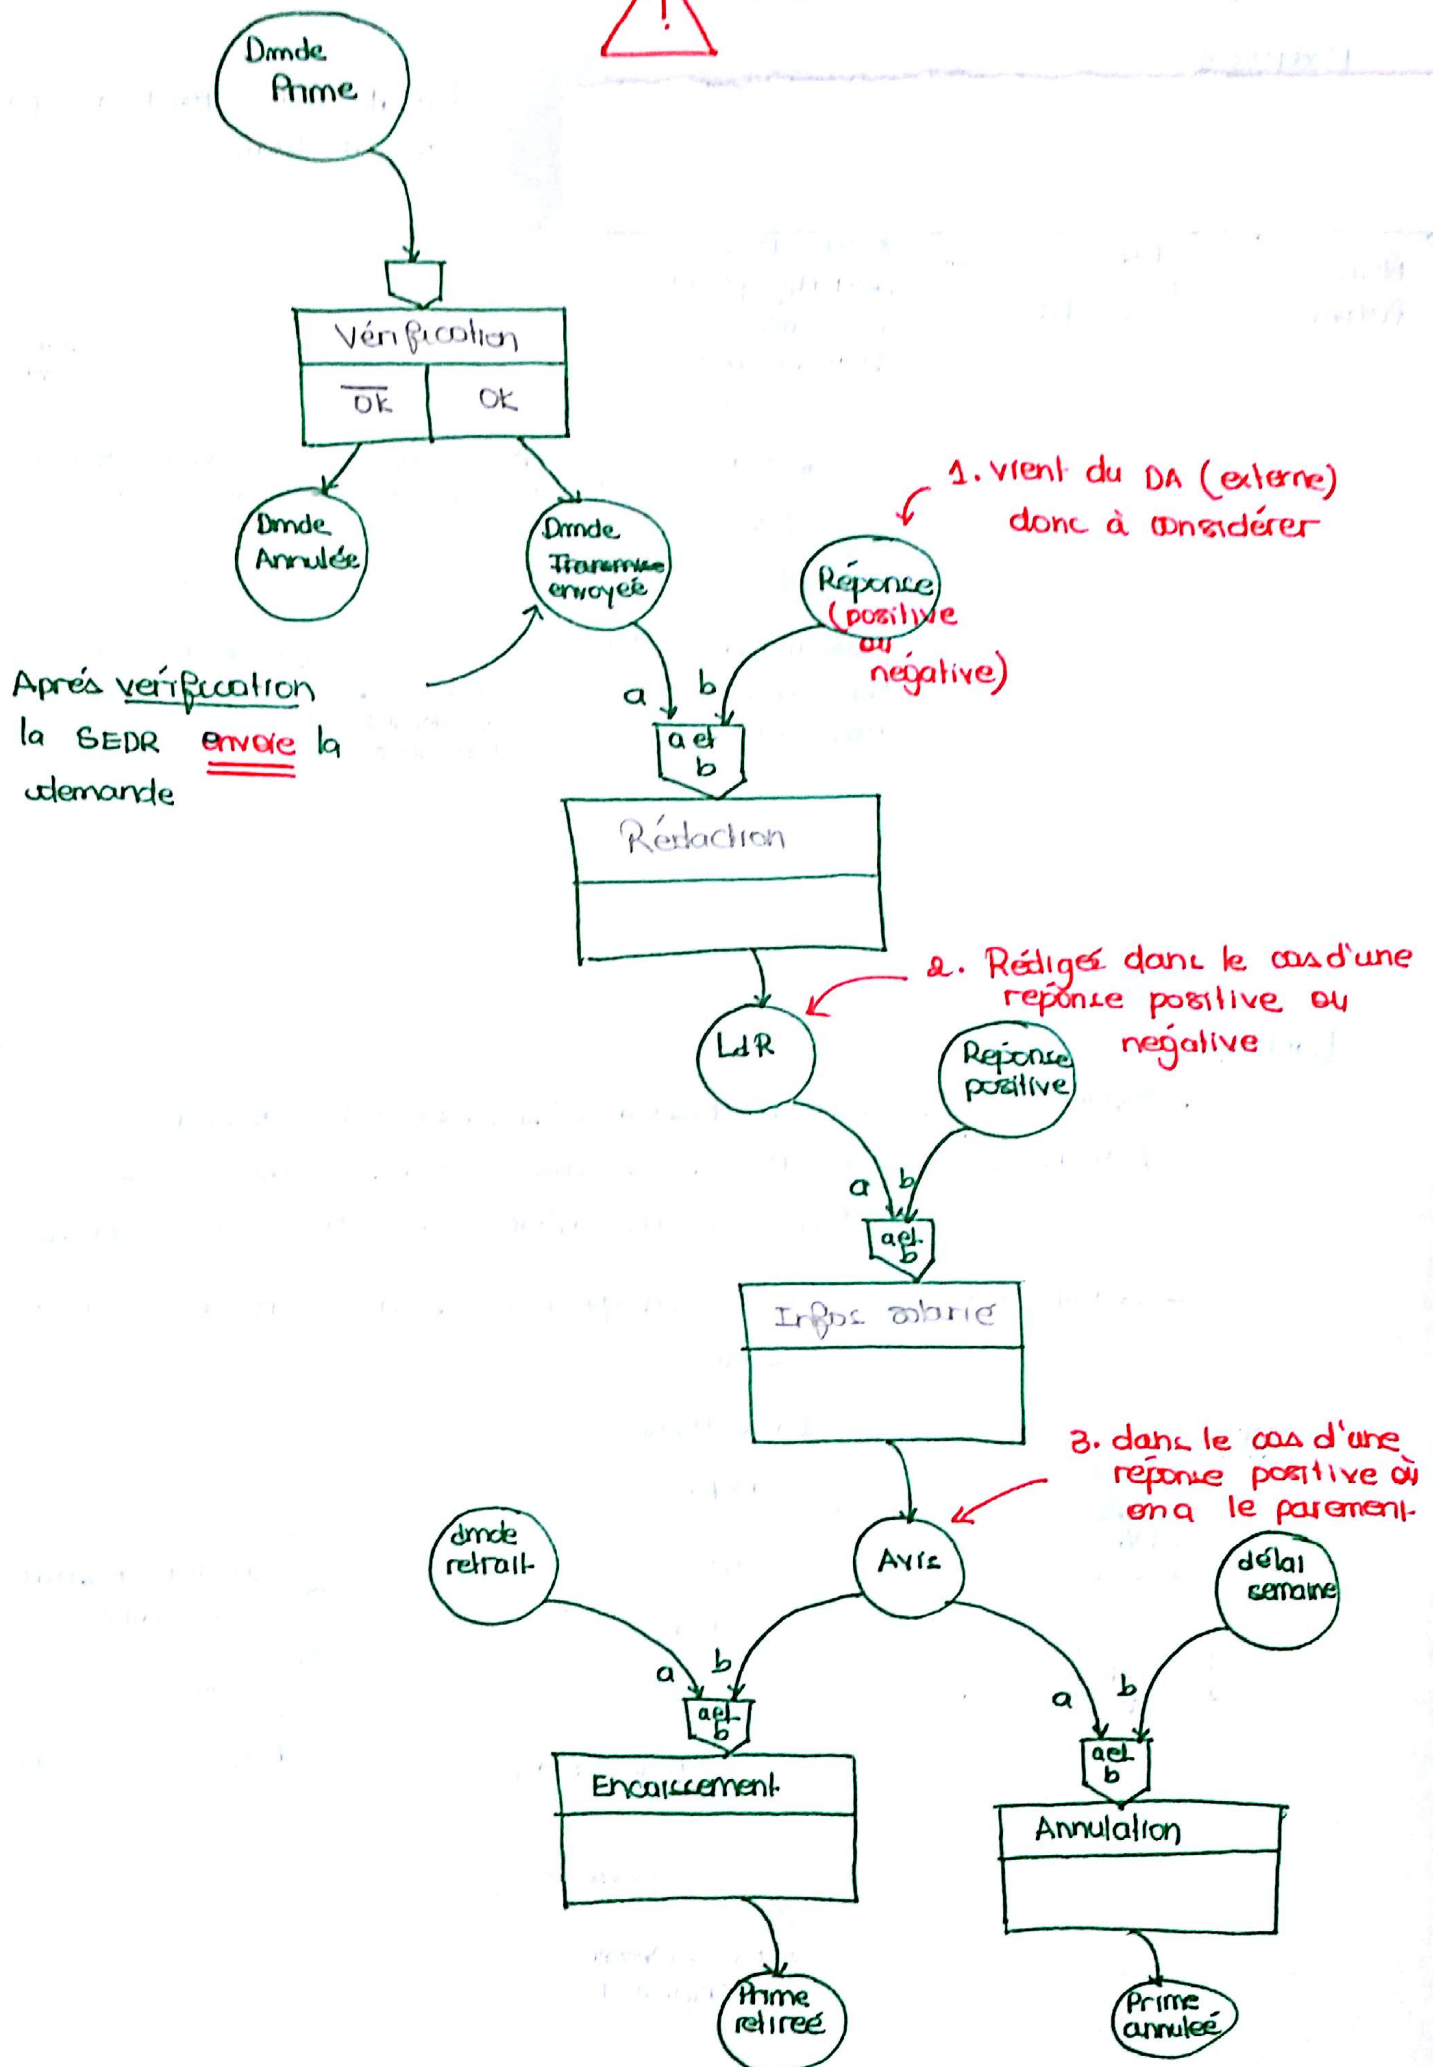 !
Dmde
Prime
Vérification
OK
OK
1. vient du DA (externe)
donc à considérer
Dmde
Annulée
Dmde
Transmise
envoyeé
Réponse
(positive
ou
négative)
Aprés vérification
la SEDR envoie la
demande
a
b
a et
b
Rédaction
2. Rédigeé dans le cas d'une
réponse positive ou
négative
LdR
Réponse
positive
a
b
a et
b
Infos salarié
3. dans le cas d'une
réponse positive où
on a le paiement
dmde
retrait
Avis
délai
semaine
a
b
a
b
a et
b
a et
b
Encaissement
Annulation
Prime
retireé
Prime
annuleé